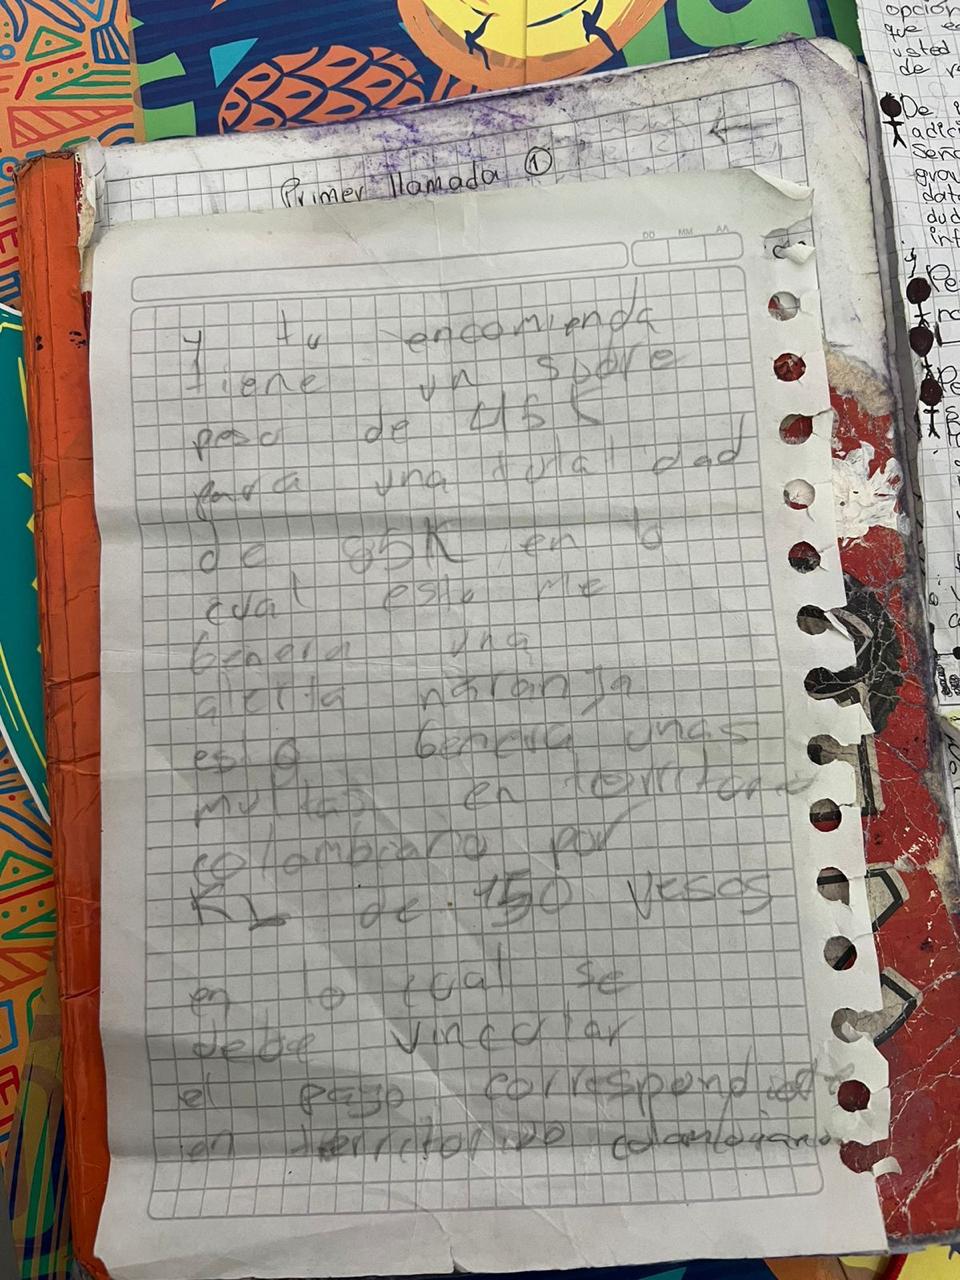 Primer llamada ①
DD MM AA
y tu encomienda
tiene un sobre
peso de 45K
para una total dad
de 85K en lo
cual esto me
Genera una
alerta naranja
esto Genera unas
multas en territorio
colombiano por
KL de 150 Vesos
en lo cual se
debe vincular
el pago correspondiente
en territorio colombiano
opción
que e
usted
de
De
adici
Seño
grav
dat
dud
inf
y
Pe